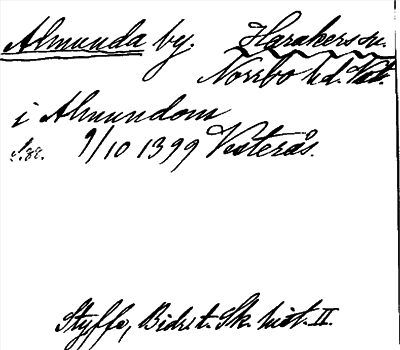 Almunda by. Harakers sn.
Norrbo hd. Vst.
i Almundom
9/10 1399 Vesterås.
Styffe, Bidr. t. Sk. hist. II.